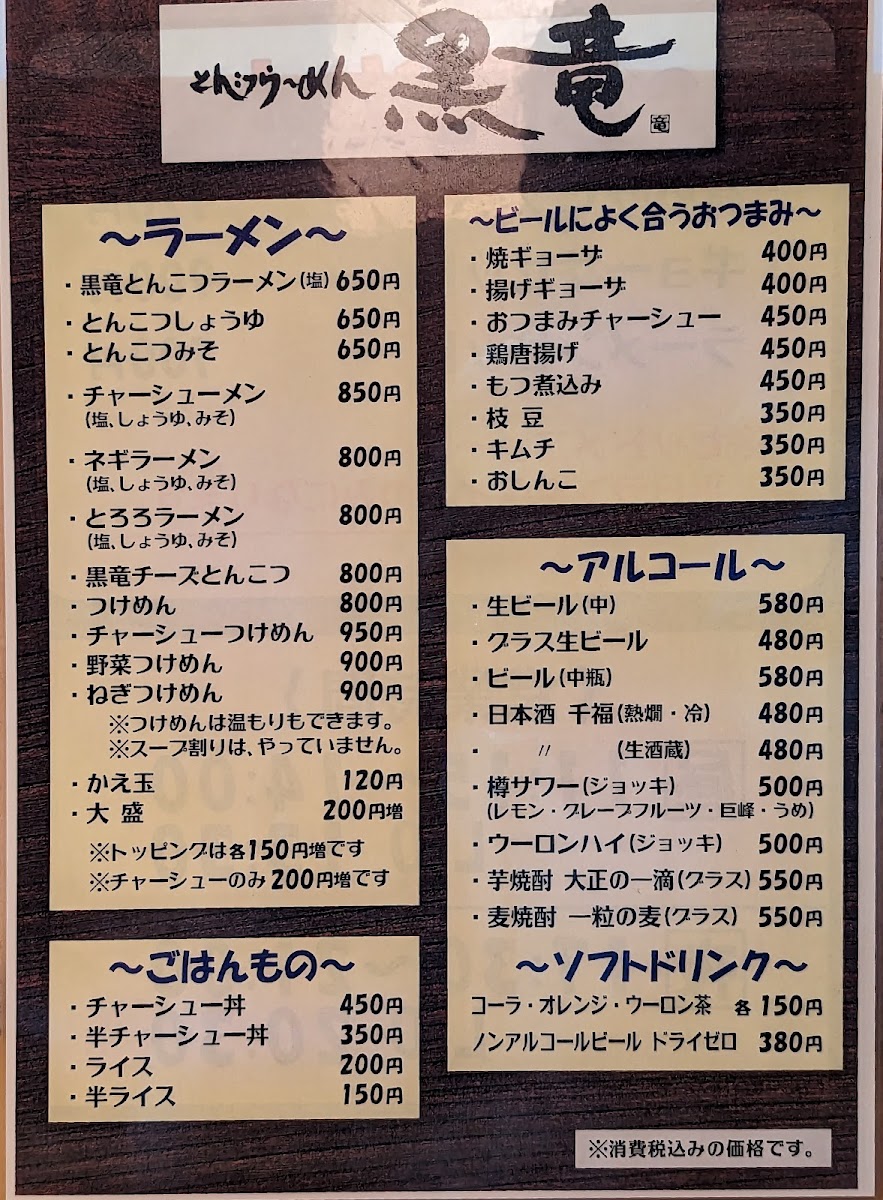 とんこつらーめん 黒竜
竜
～ラーメン～
・黒竜とんこつラーメン(塩) 650円
・とんこつしょうゆ 650円
・とんこつみそ 650円
・チャーシューメン 850円
(塩、しょうゆ、みそ)
・ネギラーメン 800円
(塩、しょうゆ、みそ)
・とろろラーメン 800円
(塩、しょうゆ、みそ)
・黒竜チーズとんこつ 800円
・つけめん 800円
・チャーシューつけめん 950円
・野菜つけめん 900円
・ねぎつけめん 900円
※つけめんは温もりもできます。
※スープ割りは、やっていません。
・かえ玉 120円
・大 盛 200円増
※トッピングは各150円増です
※チャーシューのみ200円増です
～ごはんもの～
・チャーシュー丼 450円
・半チャーシュー丼 350円
・ライス 200円
・半ライス 150円
～ビールによく合うおつまみ～
・焼ギョーザ 400円
・揚げギョーザ 400円
・おつまみチャーシュー 450円
・鶏唐揚げ 450円
・もつ煮込み 450円
・枝 豆 350円
・キムチ 350円
・おしんこ 350円
～アルコール～
・生ビール(中) 580円
・グラス生ビール 480円
・ビール(中瓶) 580円
・日本酒 千福(熱燗・冷) 480円
・ 〃 (生酒蔵) 480円
・樽サワー(ジョッキ) 500円
(レモン・グレープフルーツ・巨峰・うめ)
・ウーロンハイ(ジョッキ) 500円
・芋焼酎 大正の一滴(グラス) 550円
・麦焼酎 一粒の麦(グラス) 550円
～ソフトドリンク～
コーラ・オレンジ・ウーロン茶 各150円
ノンアルコールビール ドライゼロ 380円
※消費税込みの価格です。